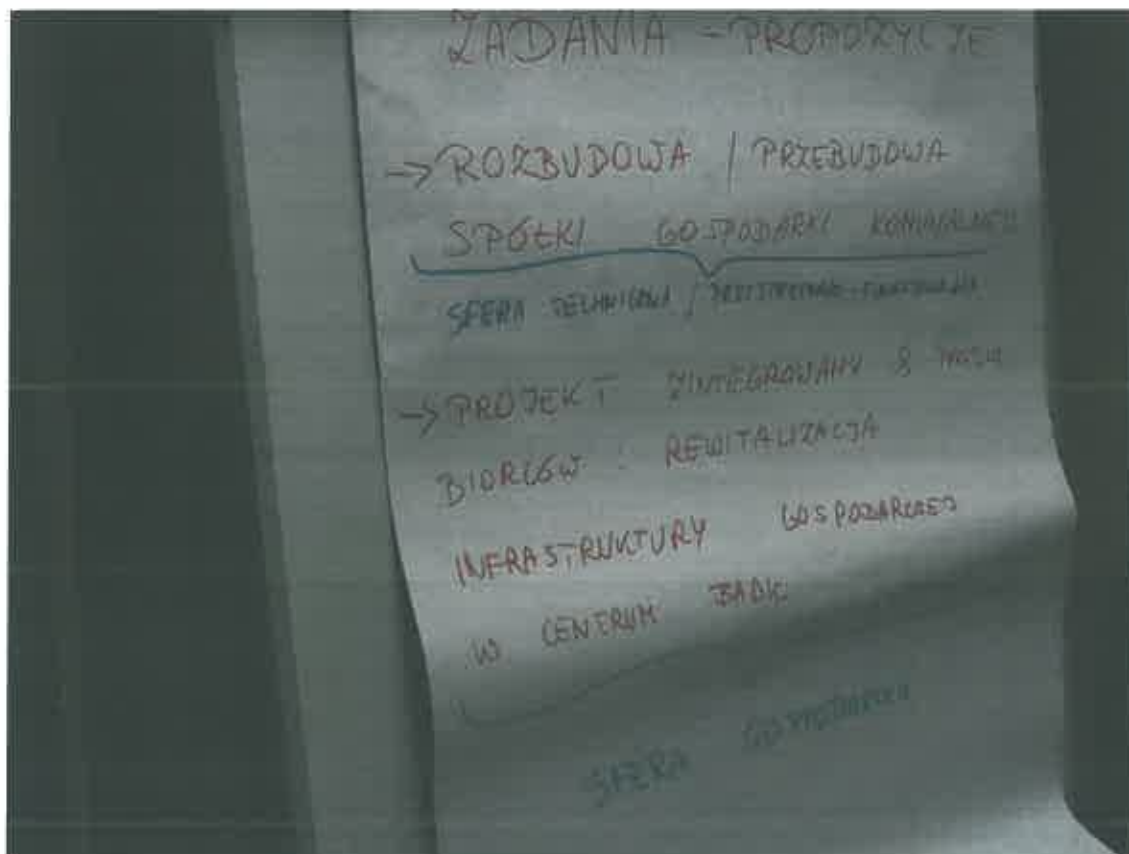 ZADANIA - PROPOZYCJE
→ ROZBUDOWA / PRZEBUDOWA
SPÓŁKI GOSPODARKI KOMUNALNEJ
SFERA TECHNICZNA / PRZESTRZENNO-FUNKCJONALNA
→ PROJEKT ZINTEGROWANY 8
BIORCÓW : REWITALIZACJA
INFRASTRUKTURY GOSPODARCZEJ
W CENTRUM BABIC
SFERA GOSPODARCZA